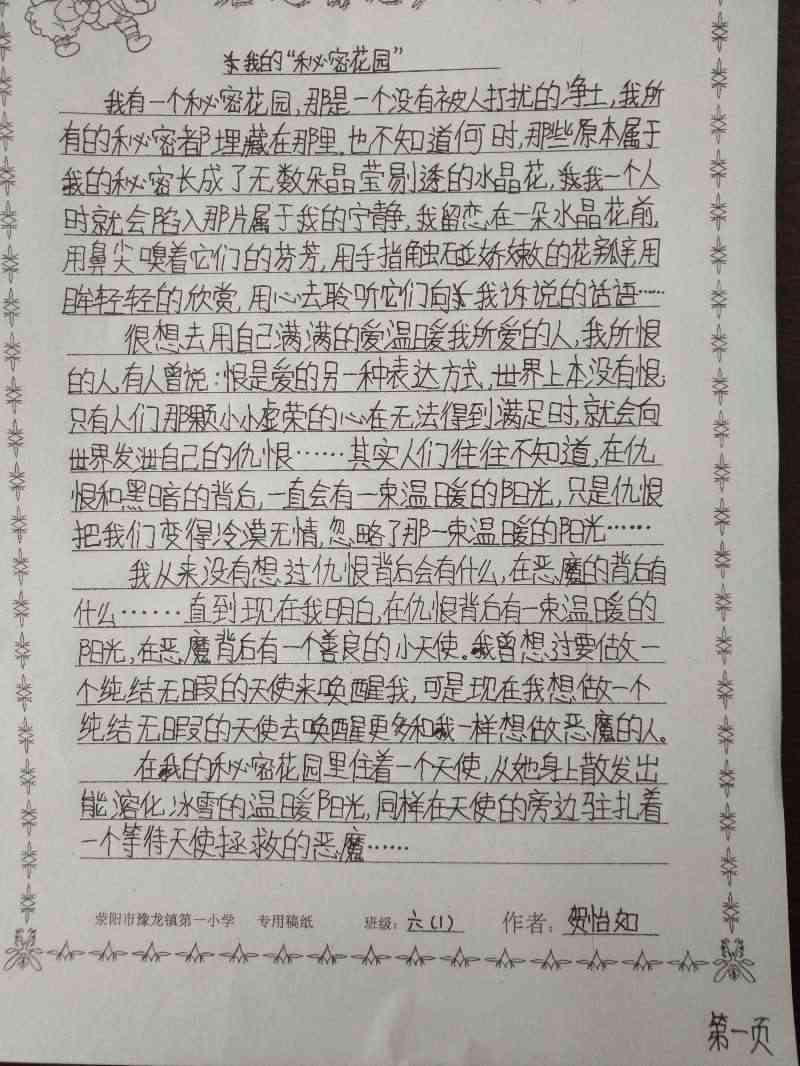 我的“秘密花园”
我有一个秘密花园,那是一个没有被人打扰的净土,我所
有的秘密都埋藏在那里.也不知道何时,那些原本属于
我的秘密长成了无数朵晶莹剔透的水晶花,我一个人
时就会陷入那片属于我的宁静,我留恋在一朵水晶花前,
用鼻尖嗅着它们的芬芳,用手指触碰娇嫩的花瓣,用
眸轻轻的欣赏,用心去聆听它们向我诉说的话语……
很想去用自己满满的爱温暖我所爱的人,我所恨
的人,有人曾说:恨是爱的另一种表达方式,世界上本没有恨,
只有人们那颗小小虚荣的心在无法得到满足时,就会向
世界发泄自己的仇恨……其实人们往往不知道,在仇
恨和黑暗的背后,一直会有一束温暖的阳光,只是仇恨
把我们变得冷漠无情,忽略了那一束温暖的阳光……
我从来没有想过仇恨背后会有什么,在恶魔的背后有
什么……直到现在我明白,在仇恨背后有一束温暖的
阳光,在恶魔背后有一个善良的小天使。我曾想过要做一
个纯结无暇的天使来唤醒我,可是现在我想做一个
纯结无暇的天使去唤醒更多和我一样想做恶魔的人。
在我的秘密花园里住着一个天使,从她身上散发出
能溶化冰雪的温暖阳光,同样在天使的旁边驻扎着
一个等待天使拯救的恶魔……
荥阳市豫龙镇第一小学 专用稿纸 班级:六(1) 作者:贺怡如
第一页